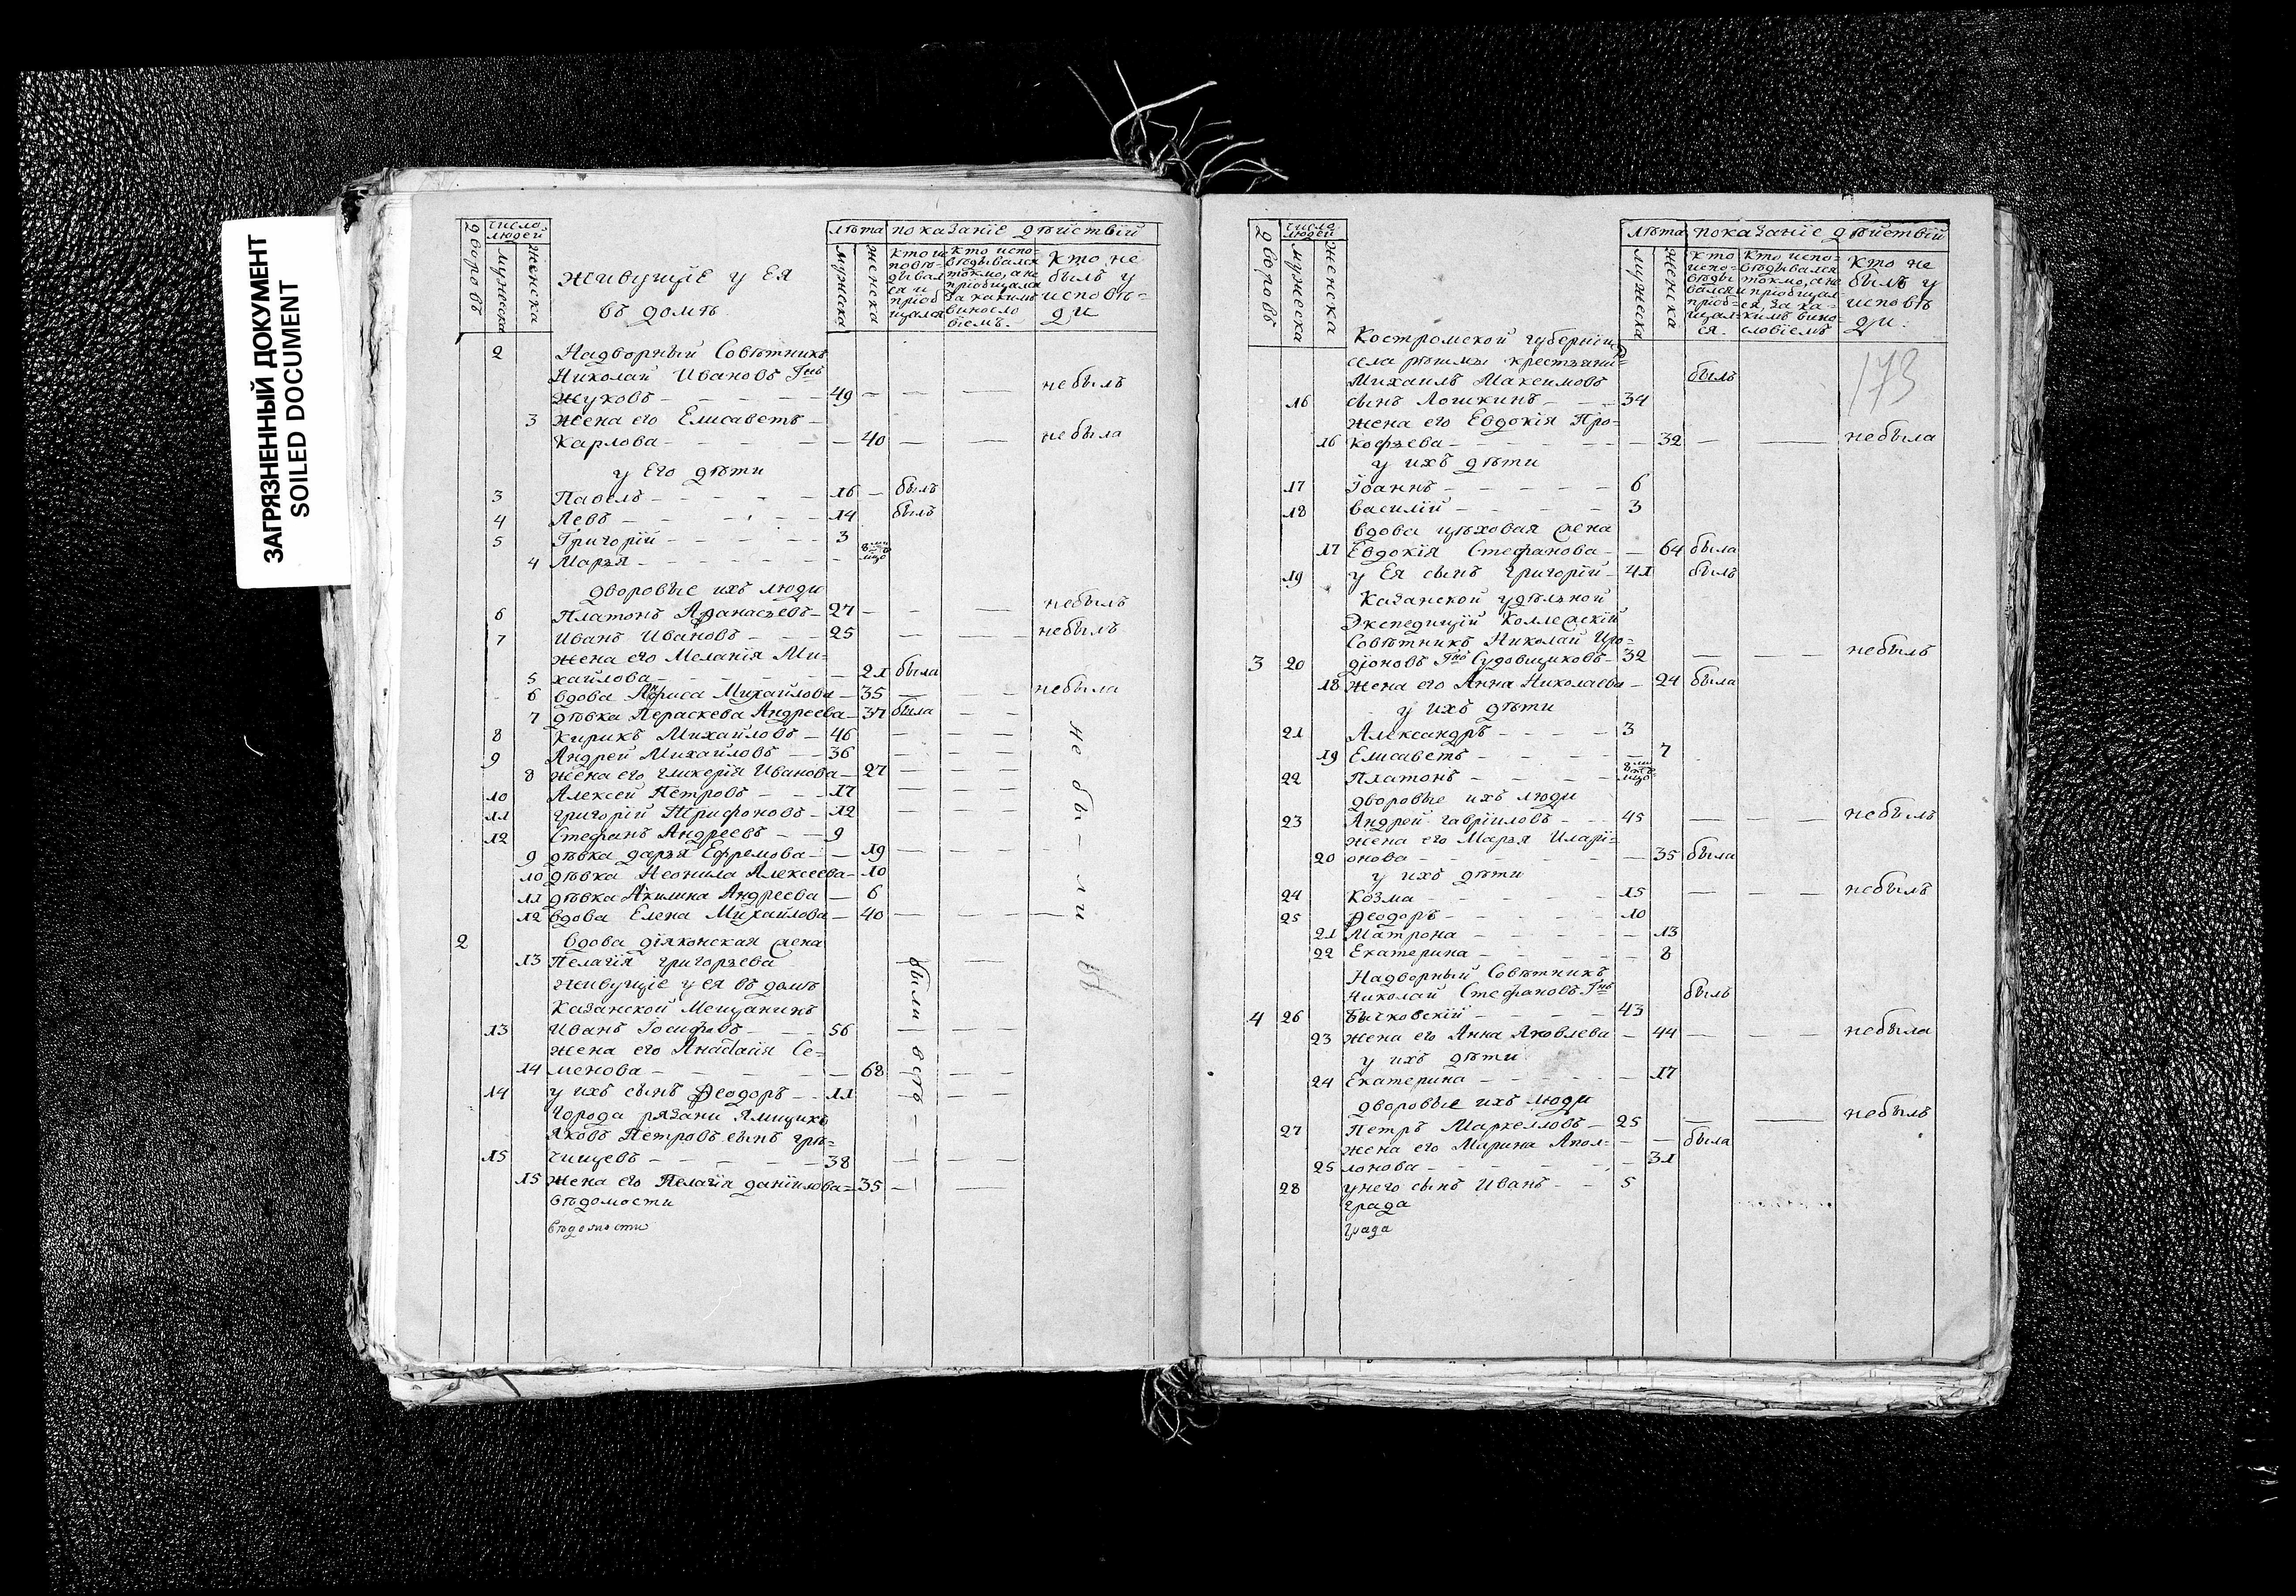 ЗАГРЯЗНЕННЫЙ ДОКУМЕНТ
SOILED DOCUMENT
дворовъ
число людей
мужеска
женска
живущіе у ея
въ домѣ
лѣта
мужеска
женска
показаніе дѣйствій
кто исповѣдывался и пріобщался
кто исповѣдывался токмо, а не пріобщался и за какимъ винословіемъ.
кто не былъ у исповѣди
2 Надворный Совѣтникъ
Николай Ивановъ Гнъ
Жуковъ 49 — — — небылъ
3 Жена его Елисаветъ
Карлова — 40 — — небыла
у Его дѣти
3 Павелъ 16 — былъ
4 Левъ 14 былъ
5 Григорій 3
4 Марья
дворовые ихъ люди
6 Платонъ Афанасьевъ 27 — — — небылъ
7 Иванъ Ивановъ 25 — — небылъ
жена его Меланія Ми=
5 хайлова 21 была
6 вдова Михайлова 35 — — небыла
7 дѣвка Параскева Андреева 37 была
8 Кирикъ Михайловъ 46
9 Андрей Михайловъ 36
8 жена его гликерія Иванова 27
10 Алексей Петровъ 17
11 григорій Трифоновъ 12
12 Стефанъ Андреевъ 9
9 дѣвка дарья Ефремова 19
10 дѣвка Неонила Алексеева 10
11 дѣвка Акилина Андреева 6
12 вдова Елена Михайлова 40
не бы-ли
2 вдова діяконская жена
13 Пелагія григорьева
живущіе у ея въ домѣ
Казанской Мещанинъ
13 Иванъ Іосифовъ 56
жена его Се=
14 менова 68
14 у ихъ сынъ Ѳеодоръ 11
города рязани Ямщикъ
Яковъ Петровъ сынъ гры=
15 чищевъ 38
15 жена его Пелагія даніилова 35
были
вѣдомости
вѣдомости
дворовъ
число людей
мужеска
женска
лѣта
мужеска
женска
показаніе дѣйствій
кто исповѣдывался и пріобщался.
кто исповѣдывался токмо, а не пріобщался, за какимъ винословіемъ
кто не былъ у исповѣди.
173
Костромской губерніи
села рѣшмы крестьяни=
Михаилъ Максимовъ былъ
16 сынъ Лошкинъ 34
жена его Евдокія Про=
16 кофьева 32 — небыла
у ихъ дѣти
17 Іоаннъ 6
18 василій 3
вдова цѣховая жена
17 Евдокія Стефанова — 64 была
19 у Ея сынъ григорій 41 былъ
Казанской удѣльной
Экспедицій Коллежскій
Совѣтникъ Николай Иро=
3 20 діоновъ Гнъ Судовщиковъ 32 — — — небылъ
18 жена его Анна Николаева 24 была
у ихъ дѣти
21 Александръ 3
19 Елисаветъ 7
22 Платонъ
дворовые ихъ люди
23 Андрей гавріиловъ 45 — — — небылъ
жена его Марья Иларі=
20 онова — 35 была
у ихъ дѣти
24 Козма 15 — — — небылъ
25 Ѳеодоръ 10
21 Матрона — 13
22 Екатерина — 8
Надворный Совѣтникъ
Николай Стефановъ Гнъ былъ
4 26 Бычковскій 43
23 жена его Анна Яковлева — 44 — — — небыла
у ихъ дѣти
24 Екатерина — 17
дворовые ихъ люди
27 Петръ Маркелловъ 25 — — небылъ
жена его Марина Апол= — — была
25 лонова — 31
28 унего сынъ Иванъ 5
града
града